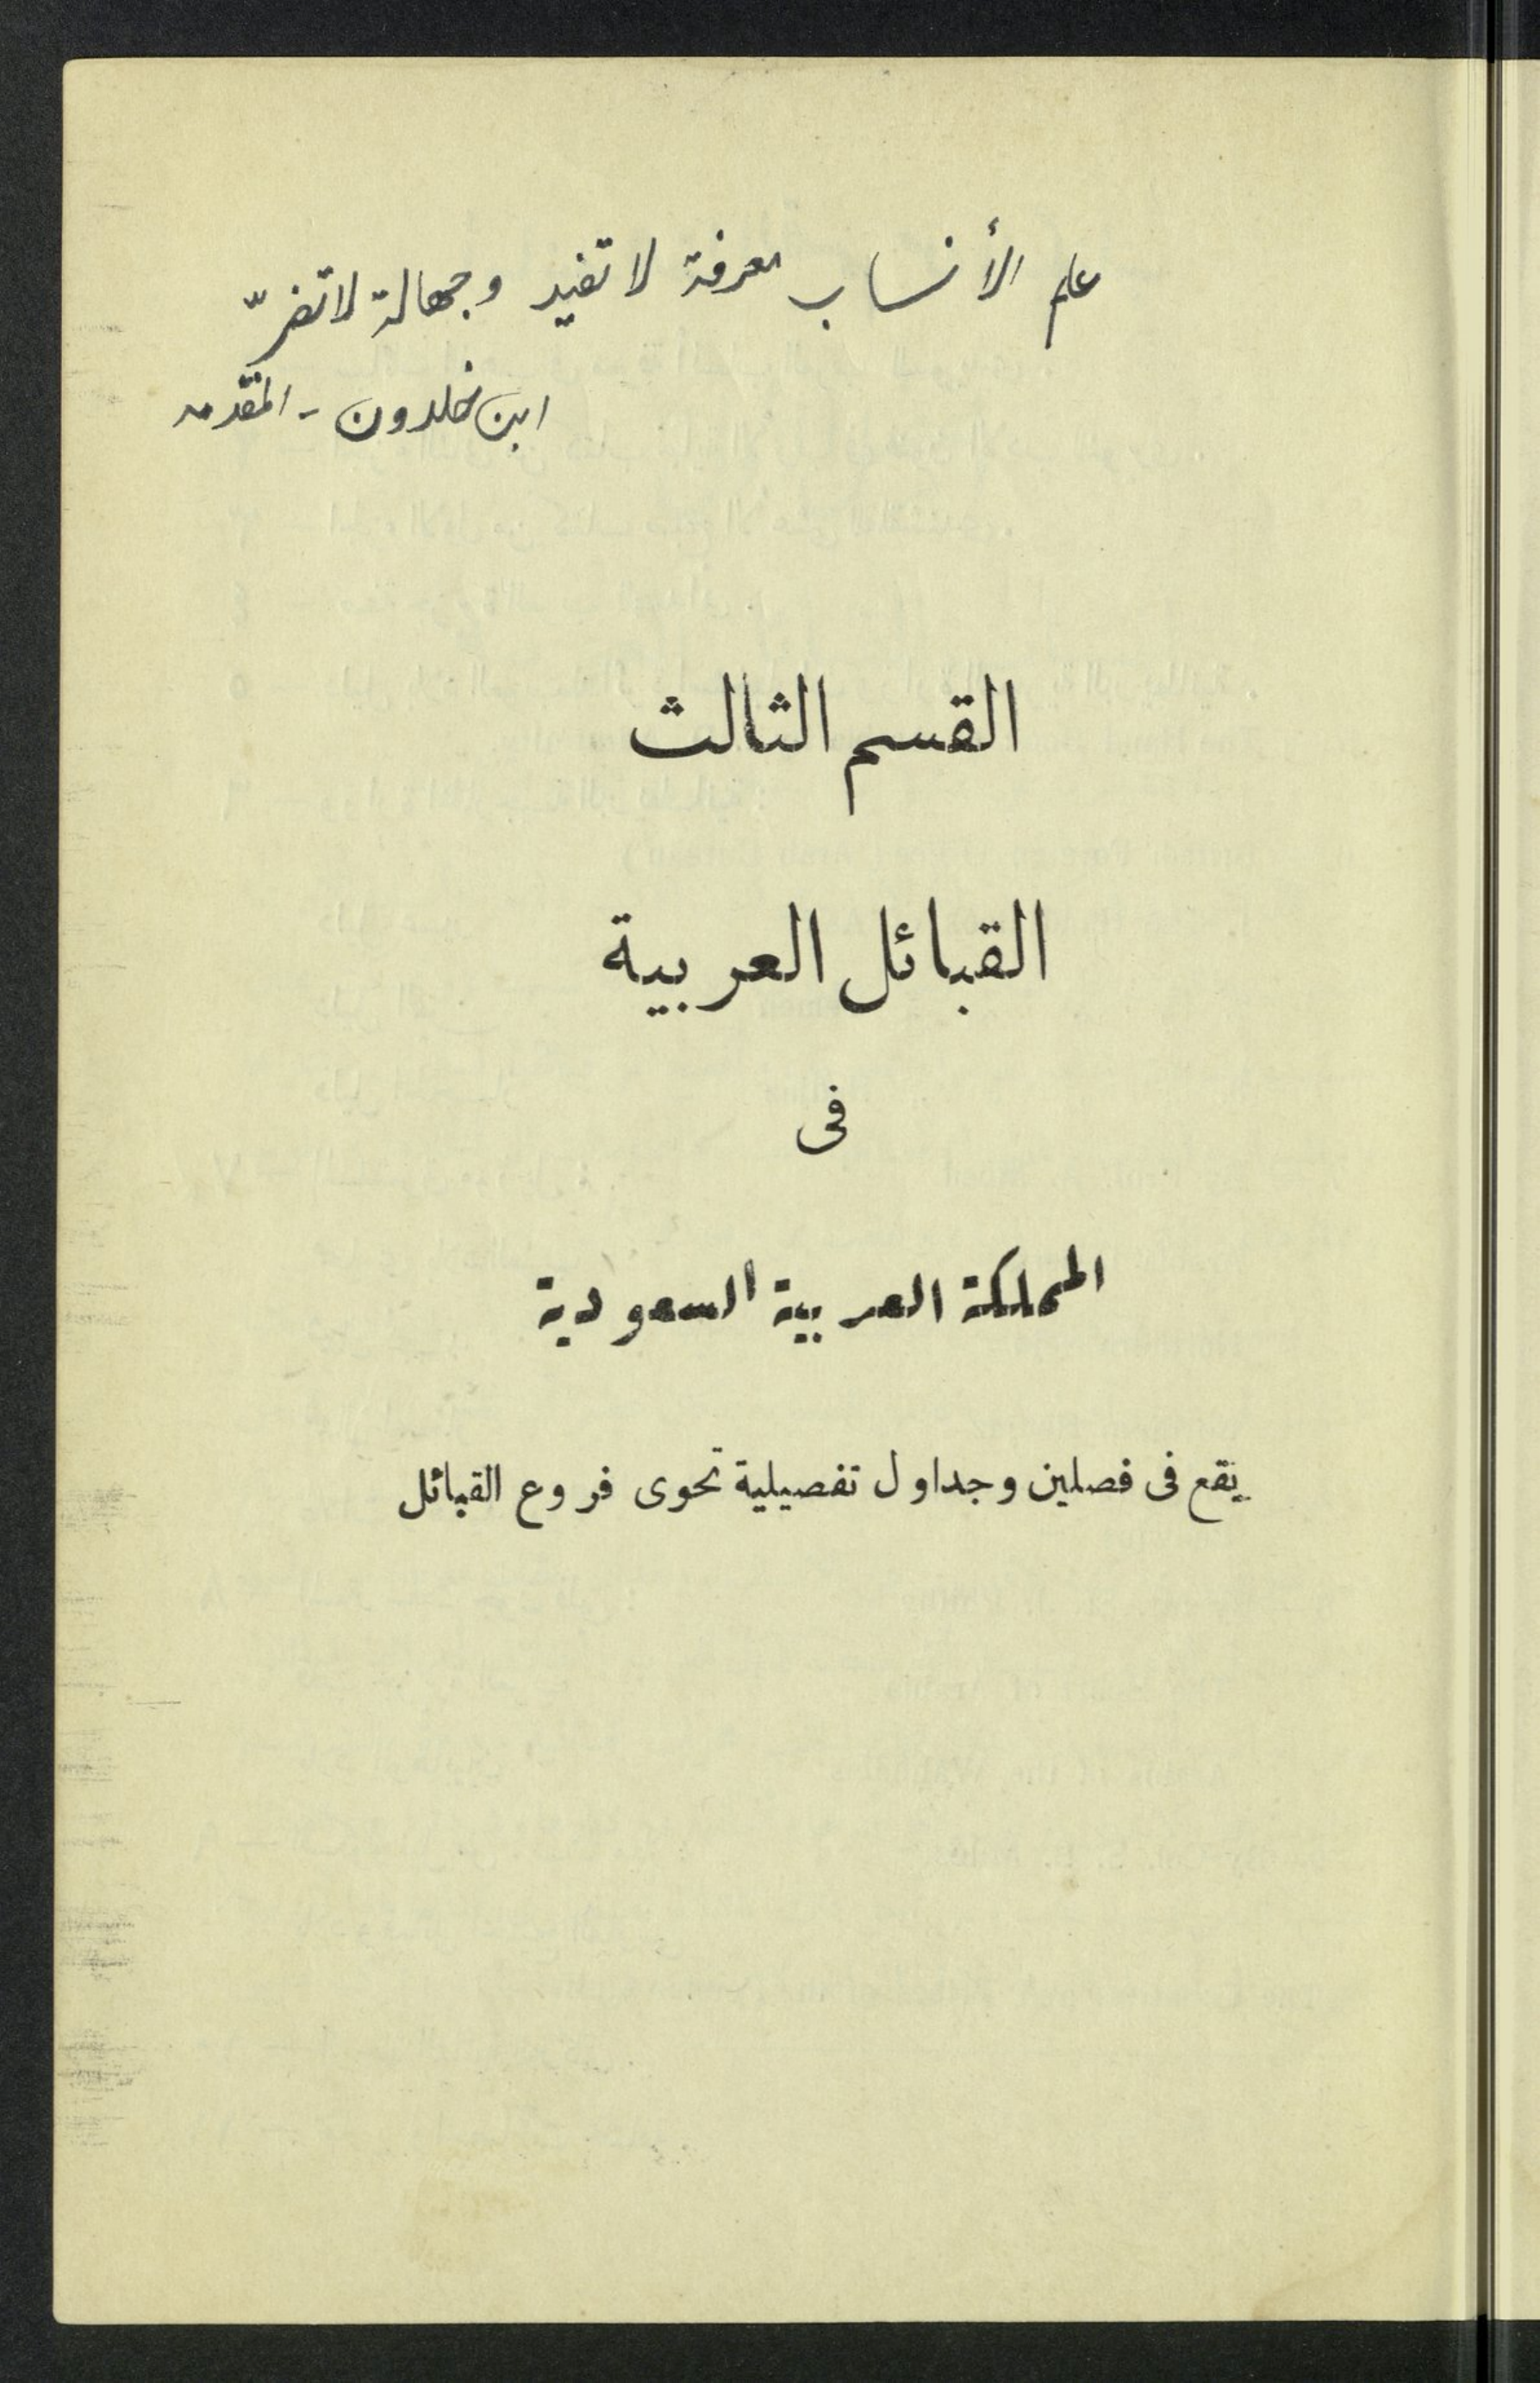 علم الأنساب معرفة لا تفيد وجهالة لا تضرّ
ابن خلدون - المقدمه
القسم الثالث
القبائل العربية
فى
المملكة العربية السعودية
يقع فى فصلين وجداول تفصيلية تحوى فروع القبائل